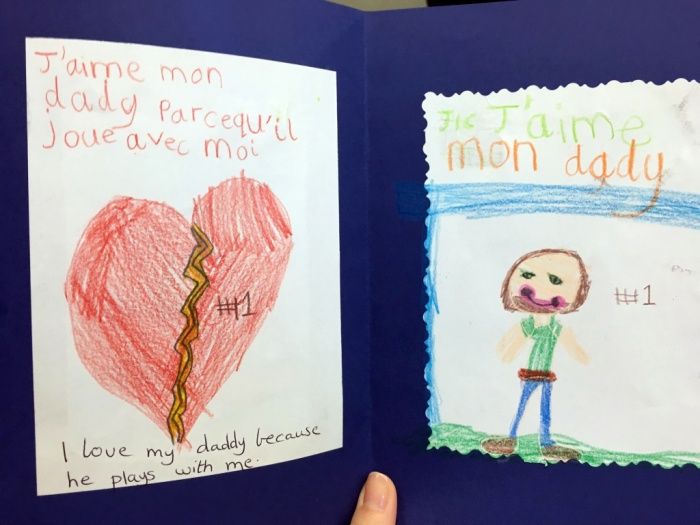 J'aime mon
dady Parcequ'il
joue avec moi
#1
I love my daddy because
he plays with me.
J'aime
mon dady
#1